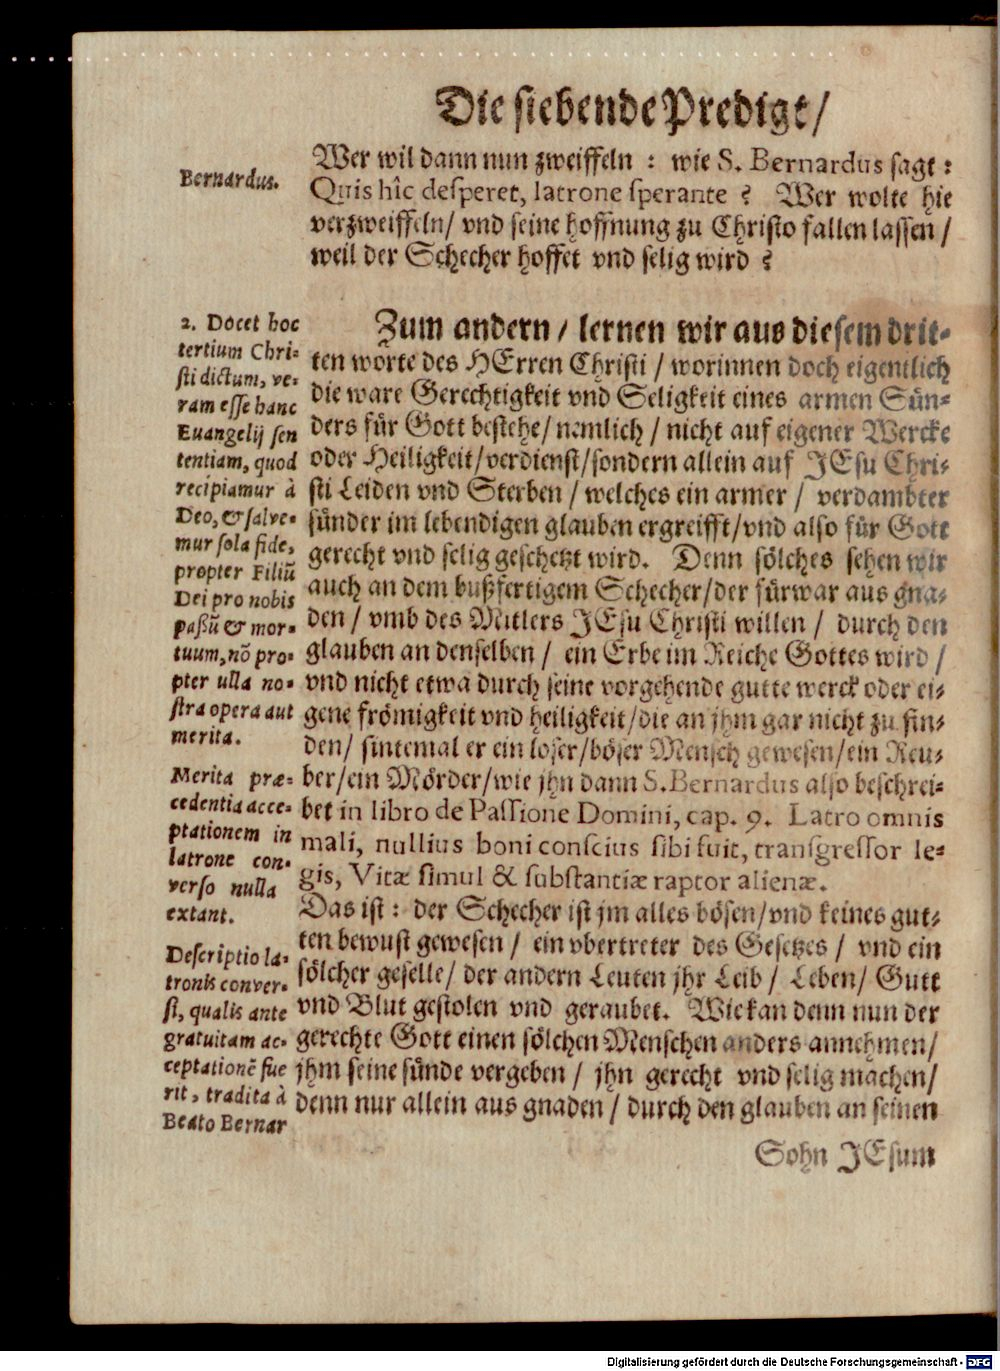 Die siebende Predigt/
Bernardus.
Wer wil dann nun zweiffeln : wie S. Bernardus sagt :
Quis hîc desperet, latrone sperante ? Wer wolte hie
verzweiffeln/ vnd seine hoffnung zu Christo fallen lassen /
weil der Schecher hoffet vnd selig wird ?
2. Docet hoc
tertium Chri-
sti dictum, ve-
ram esse hanc
Euangelij sen
tentiam, quod
recipiamur à
Deo, & salve-
mur sola fide,
propter Filiũ
Dei pro nobis
paßũ & mor-
tuum, nõ pro-
pter ulla no-
stra opera aut
merita.
Merita præ-
cedentia acce-
ptationem in
latrone con-
verso nulla
extant.
Descriptio la-
tronis conver-
si, qualis ante
gratuitam ac-
ceptationẽ fue
rit, tradita à
Beato Bernar
Zum andern / lernen wir aus diesem drit-
ten worte des HErren Christi / worinnen doch eigentlich
die ware Gerechtigkeit vnd Seligkeit eines armen Sün-
ders für Gott bestehe/ nemlich / nicht auf eigener Wercke
oder Heiligkeit/verdienst/sondern allein auf JEsu Chri-
sti Leiden vnd Sterben / welches ein armer / verdambter
sünder im lebendigen glauben ergreifft/vnd also für Gott
gerecht vnd selig geschetzt wird. Denn sölches sehen wir
auch an dem bußfertigem Schecher/der fürwar aus gna-
den / vmb des Mitlers JEsu Christi willen / durch den
glauben an denselben / ein Erbe im Reiche Gottes wird /
vnd nicht etwa durch seine vorgehende gutte werck oder ei-
gene frömigkeit vnd heiligkeit/die an jhm gar nicht zu fin-
den/ sintemal er ein loser/böser Mensch gewesen/ein Reu-
ber/ein Mörder/wie jhn dann S. Bernardus also beschrei-
bet in libro de Passione Domini, cap. 9. Latro omnis
mali, nullius boni conscius sibi fuit, transgressor le-
gis, Vitæ simul & substantiæ raptor alienæ.
Das ist : der Schecher ist jm alles bösen/vnd keines gut-
ten bewust gewesen / ein vbertreter des Gesetzes / vnd ein
sölcher geselle/ der andern Leuten jhr Leib / Leben/ Gutt
vnd Blut gestolen vnd geraubet. Wie kan denn nun der
gerechte Gott einen sölchen Menschen anders annehmen/
jhm seine sünde vergeben / jhn gerecht vnd selig machen/
denn nur allein aus gnaden / durch den glauben an seinen
Sohn JEsum
Digitalisierung gefördert durch die Deutsche Forschungsgemeinschaft - DFG